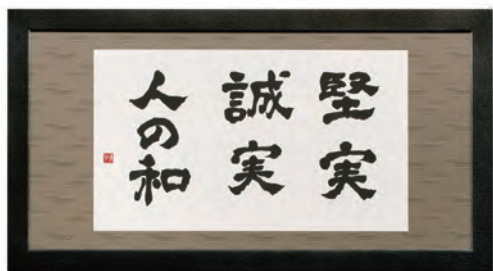 堅実
誠実
人の和